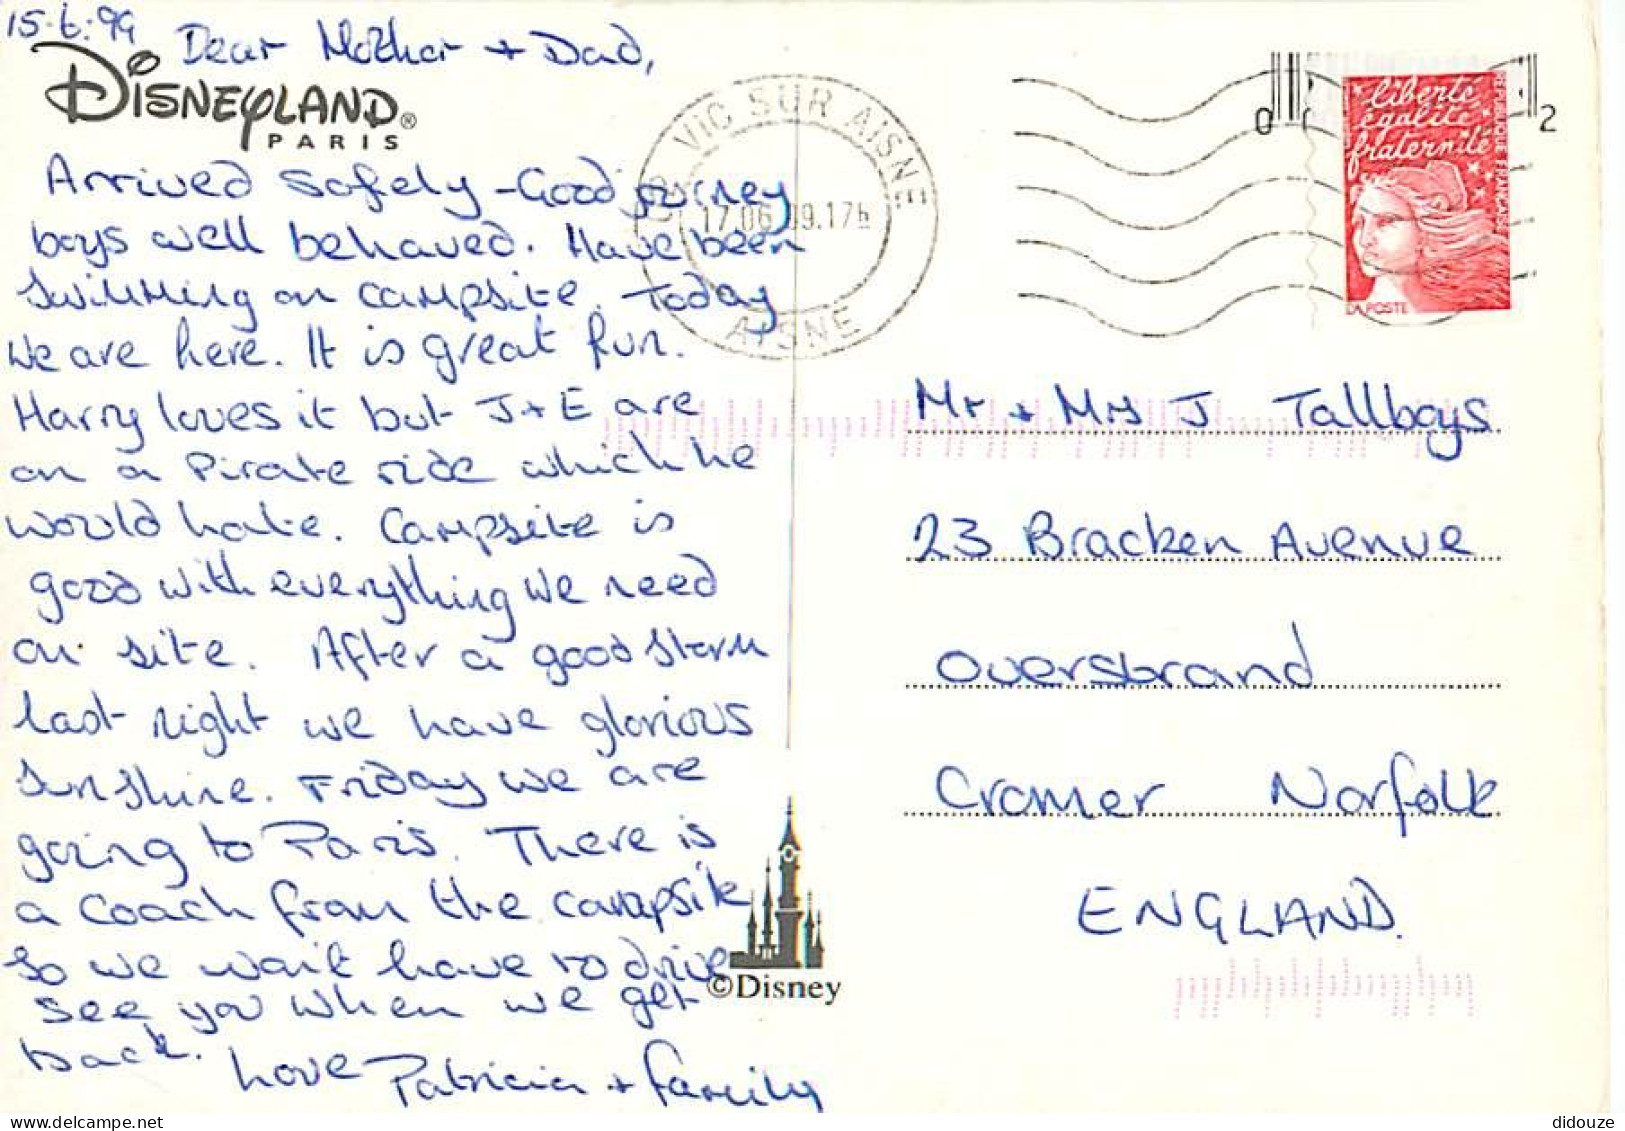 15.6.99
Dear Mother + Dad,
DISNEYLAND®
PARIS
Arrived safely - Good journey
boys well behaved. Have been
swimming on campsite. Today
we are here. It is great fun.
Harry loves it but J + E are
on a Pirate ride which he
would hate. Campsite is
good with everything we need
on site. After a good storm
last night we have glorious
sunshine. Friday we are
going to Paris. There is
a coach from the campsite
so we wont have to drive
see you when we get
back.
Love Patricia + family
©Disney
VIC SUR AISNE
17.06.99.17h
AISNE
liberté
égalité
fraternité
RÉPUBLIQUE FRANÇAISE
LA POSTE
0
2
Mr + Mrs J Tallboys
23 Bracken Avenue
Oversbrand
Cromer Norfolk
ENGLAND.
didouze